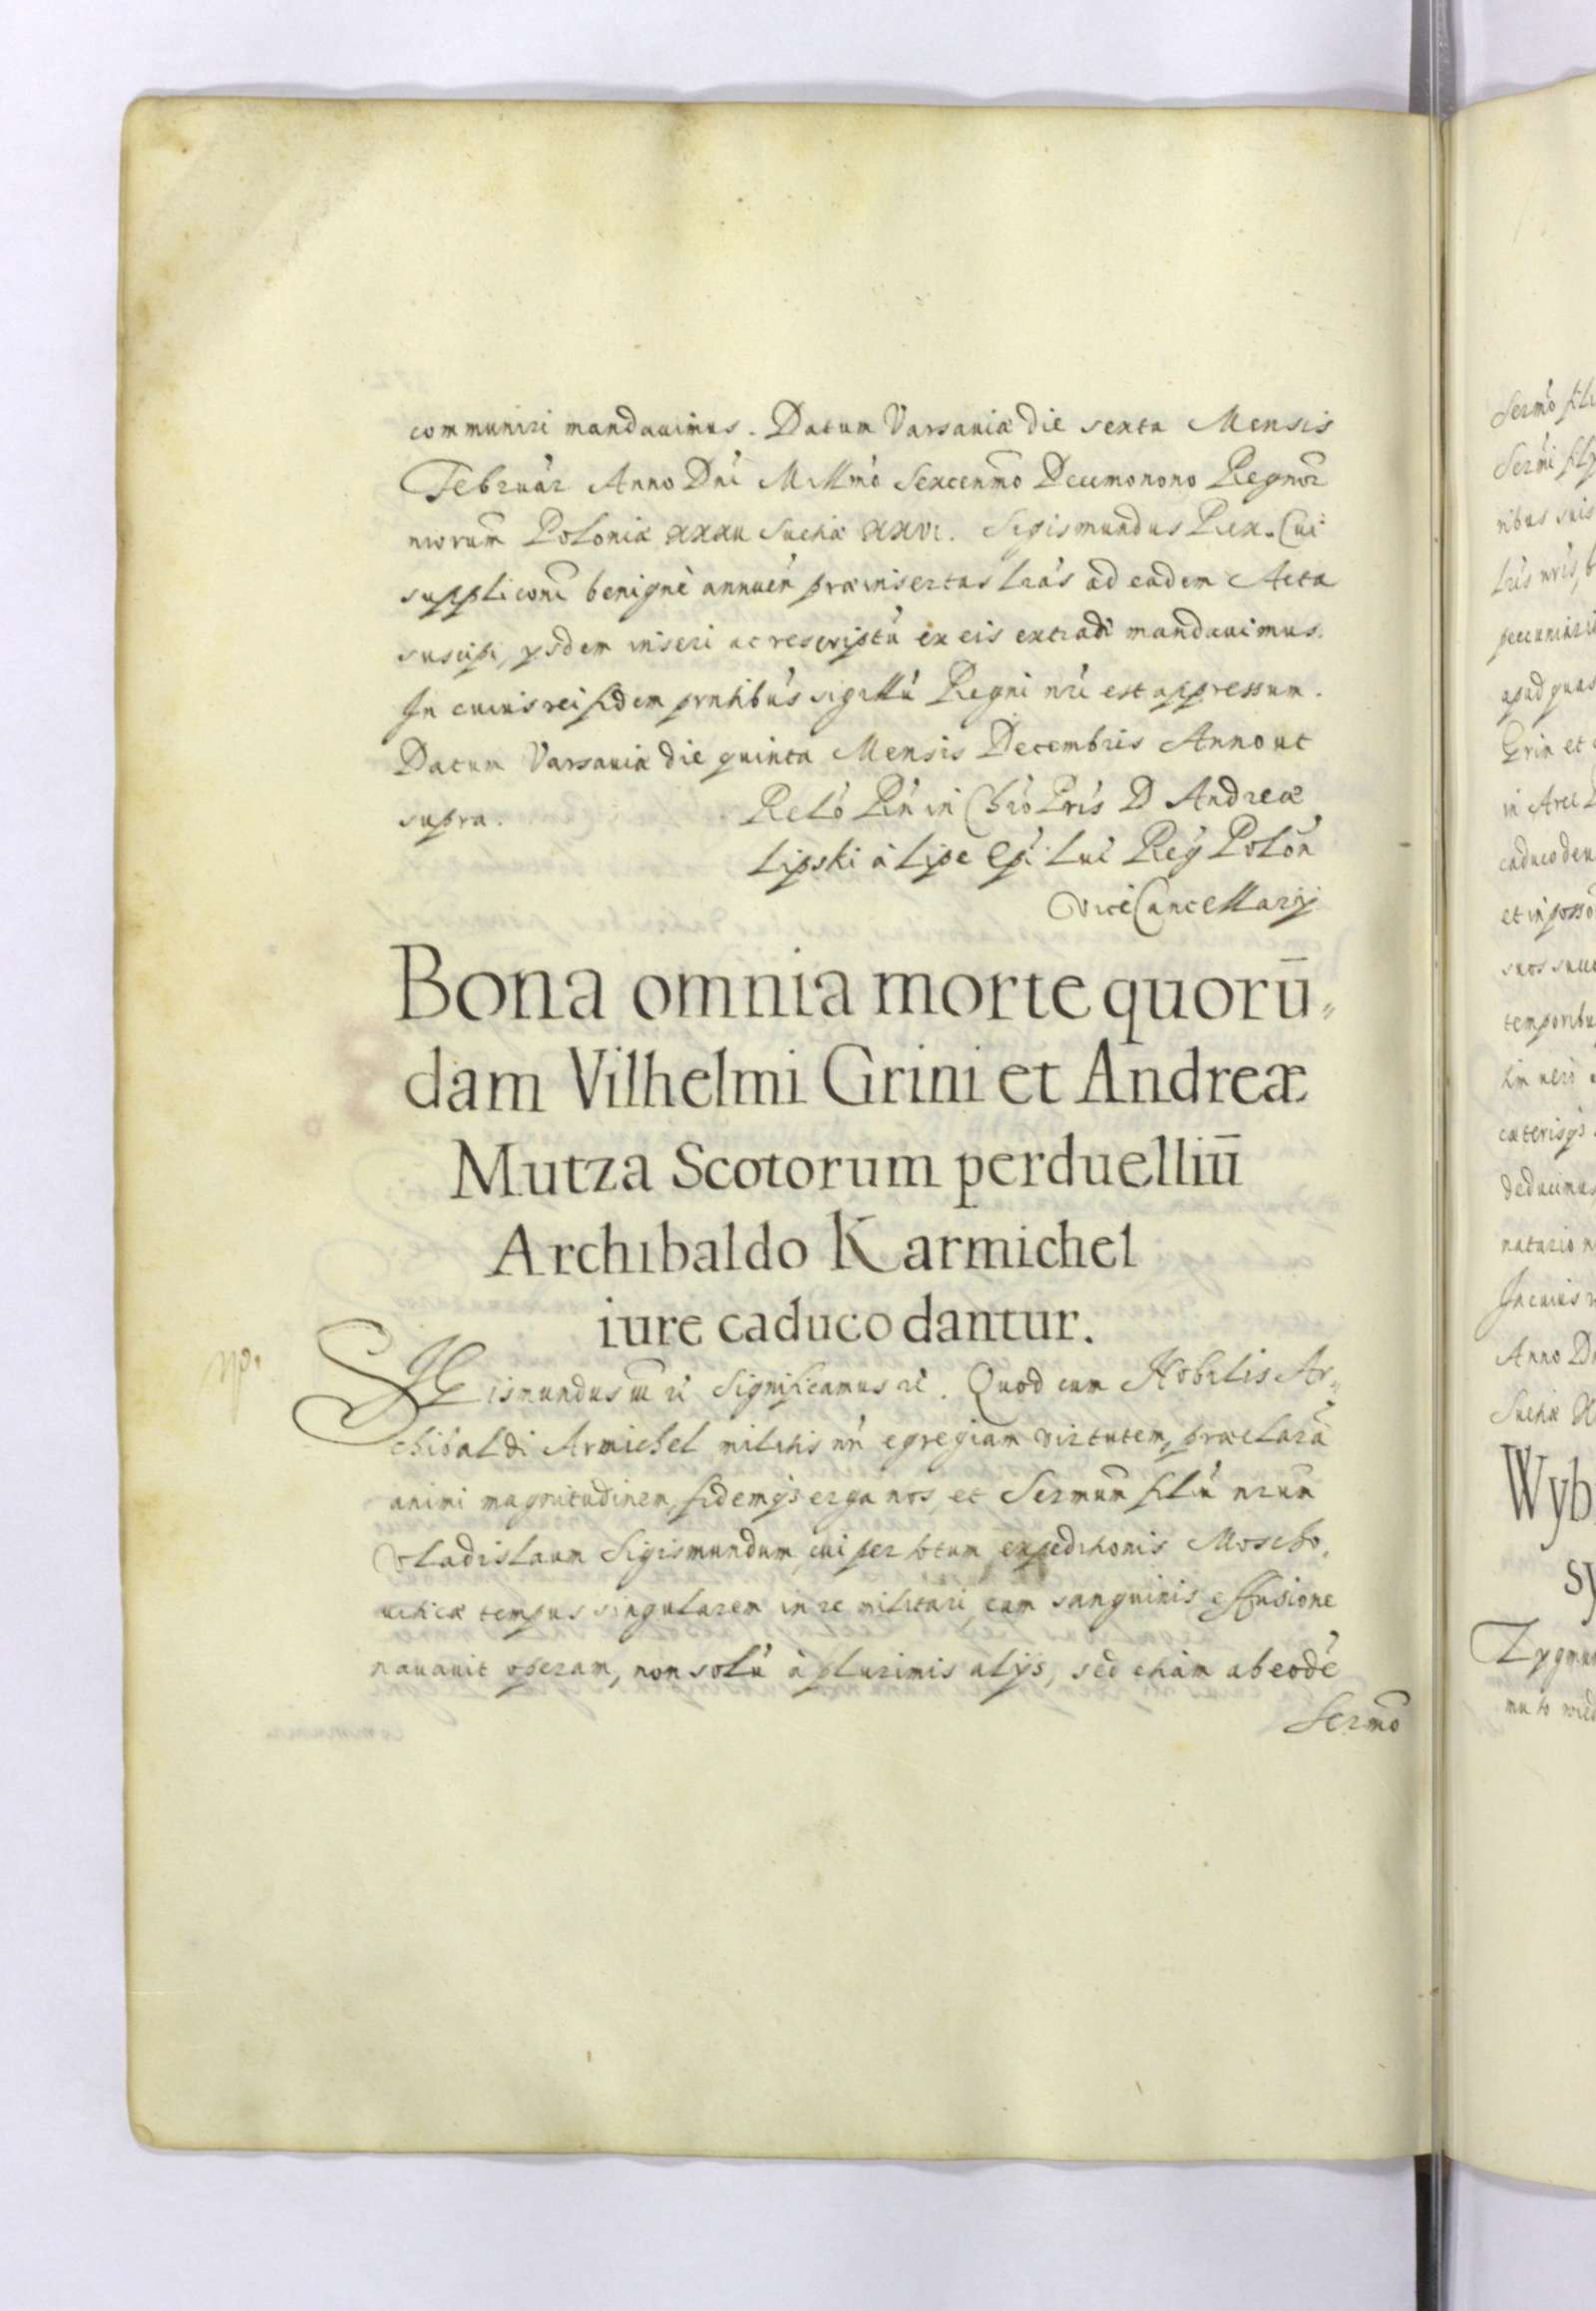 communiri mandauimus. Datum Varsauiæ die sexta Mensis
Februar̃ Anno Dnĩ Millmõ Sexcenmõ Decimonono Regnor̃
nrorum Poloniæ XXXII Sueciæ XXVI. Sigismundus Rex. Cui
supplicõni benignè annuen̄ præinsertas lrãs ad eadem Acta
suscipi, ysdem inseri ac rescriptũ ex eis extradi mandauimus.
In cuius rei fidem prntibũs sigillũ Regni nrĩ est appressum.
Datum Varsauiæ die quinta Mensis Decembris Anno ut
supra. Relõ Rñ in Chrõ Prĩs D Andreæ
Lipski à Lipe Epĩ Luc̃ Reg̃ Polon̄
ViceCancellarij
Bona omnia morte quorū„
dam Vilhelmi Grini et Andreæ
Mutza Scotorum perduelliū
Archibaldo Karmichel
iure caduco dantur.
SIGismundus III rĩ Significamus rĩ. Quod cum Nobilis Ar„
chibaldi Armichel militis nrĩ egregiam virtutem, præclarã
animi magnitudinem, fidemq3 erga nos, et Sermum filiũ nrum
Vladislaum Sigismundum, cui per totum expeditionis Moscho„
uiticæ tempus singularem in re militari, cum sanguinis effusione
nauauit operam, non solũ à plurimis alijs, sed etiam ab eodẽ
Sermõ
Sermõ
Sermi
ribus suis
apud quas
Grin et
in Arce
caduco
suos
cæterisq3
deducimus
In cuius
Anno
Sueciæ
Wyb
sy
Zygmun